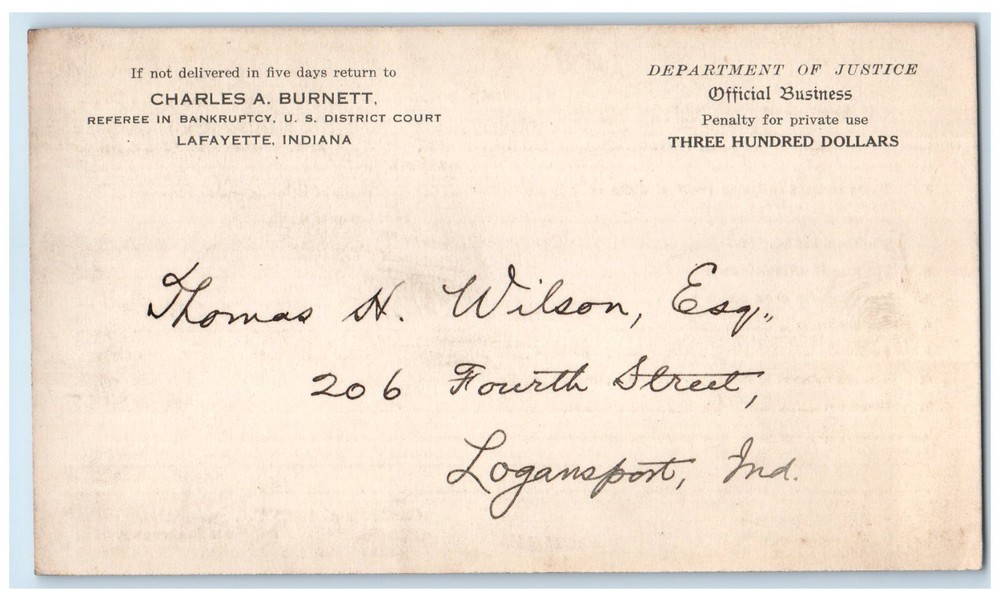 If not delivered in five days return to
CHARLES A. BURNETT,
REFEREE IN BANKRUPTCY, U. S. DISTRICT COURT
LAFAYETTE, INDIANA
DEPARTMENT OF JUSTICE
Official Business
Penalty for private use
THREE HUNDRED DOLLARS
Thomas H. Wilson, Esq.,
206 Fourth Street,
Logansport, Ind.